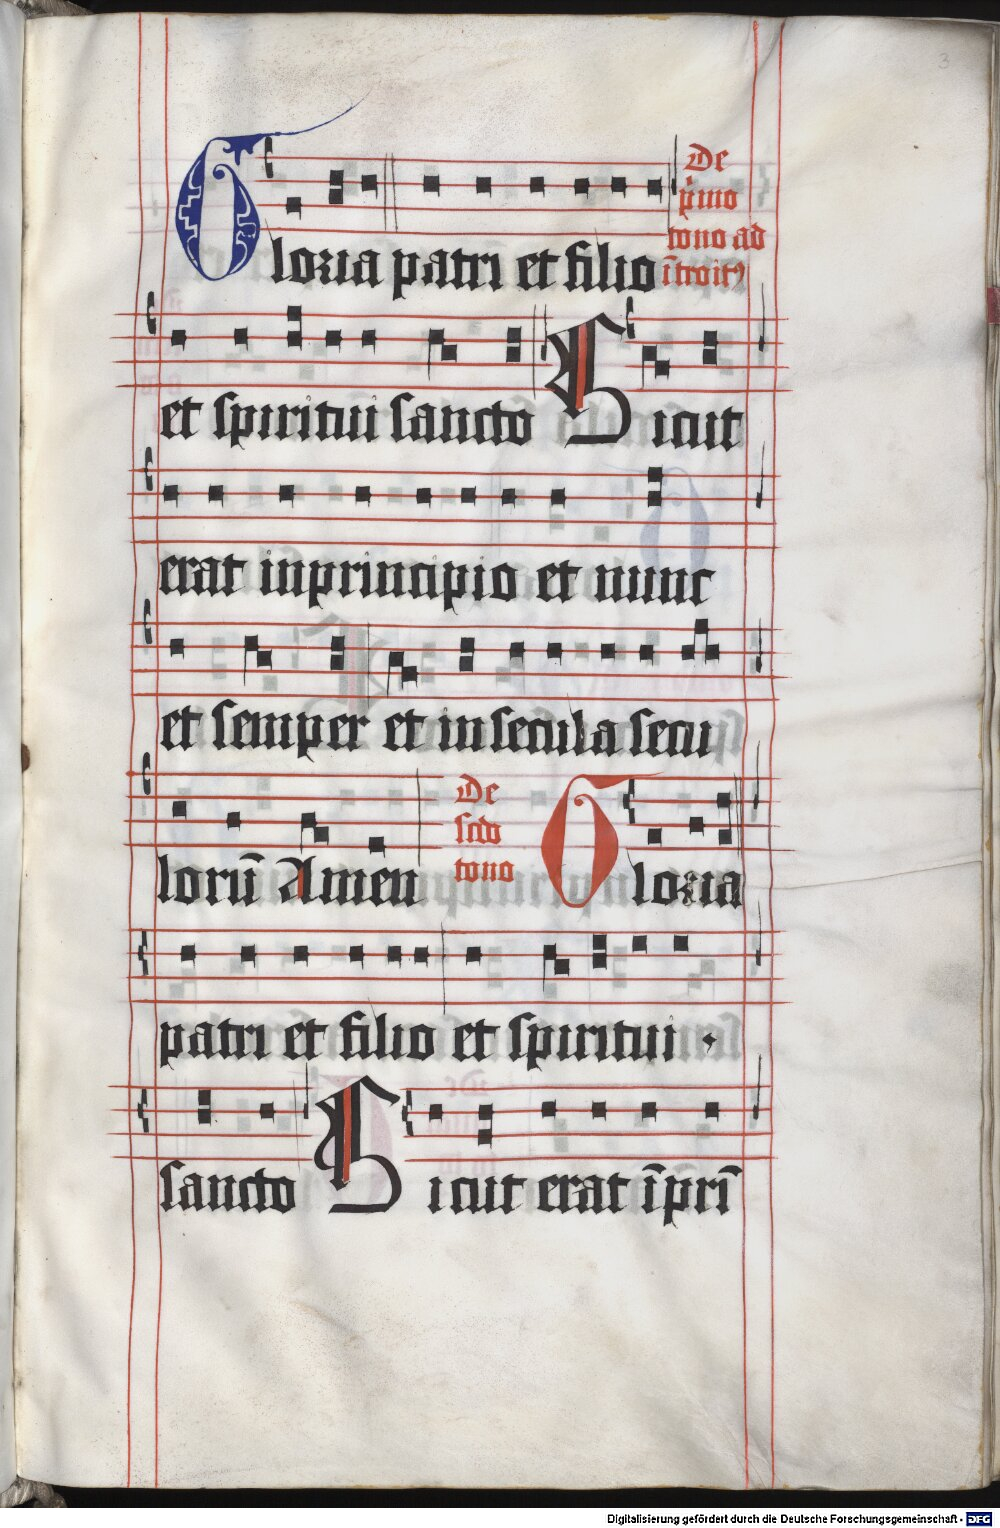 3
Gloria patri et filio
De
p̄mo
tono ad
ītroitꝰ
et spiritui sancto Sicut
erat inprincipio et nunc
et semper et insecula secu
lorū Amen
De
scdo
tono
Gloria
patri et filio et spiritui ·
sancto Sicut erat īprī
Digitalisierung gefördert durch die Deutsche Forschungsgemeinschaft · DFG